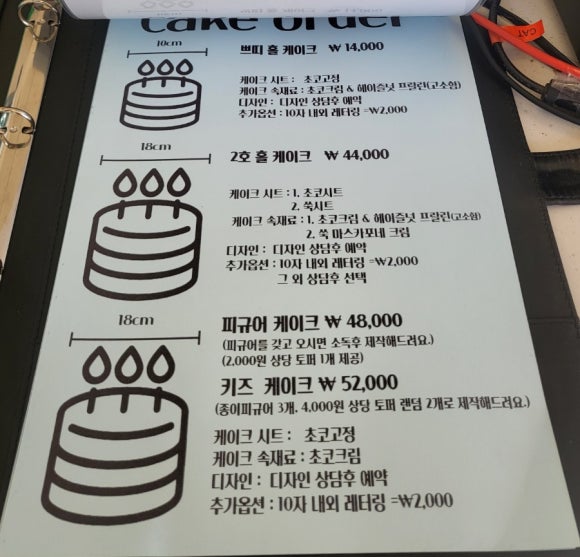 cake order
10cm
쁘띠 홀 케이크 ₩ 14,000
케이크 시트 : 초코고정
케이크 속재료 : 초코크림 & 헤이즐넛 프랄린(고소함)
디자인 : 디자인 상담후 예약
추가옵션 : 10자 내외 레터링 =₩2,000
18cm
2호 홀 케이크 ₩ 44,000
케이크 시트 : 1. 초코시트
2. 쑥시트
케이크 속재료 : 1. 초코크림 & 헤이즐넛 프랄린(고소함)
2. 쑥 마스카포네 크림
디자인 : 디자인 상담후 예약
추가옵션 : 10자 내외 레터링 =₩2,000
그 외 상담후 선택
18cm
피규어 케이크 ₩ 48,000
(피규어를 갖고 오시면 소독후 제작해드려요.)
(2,000원 상당 토퍼 1개 제공)
키즈 케이크 ₩ 52,000
(종이피규어 3개, 4,000원 상당 토퍼 랜덤 2개로 제작해드려요.)
케이크 시트 : 초코고정
케이크 속재료 : 초코크림
디자인 : 디자인 상담후 예약
추가옵션 : 10자 내외 레터링 =₩2,000
CAT